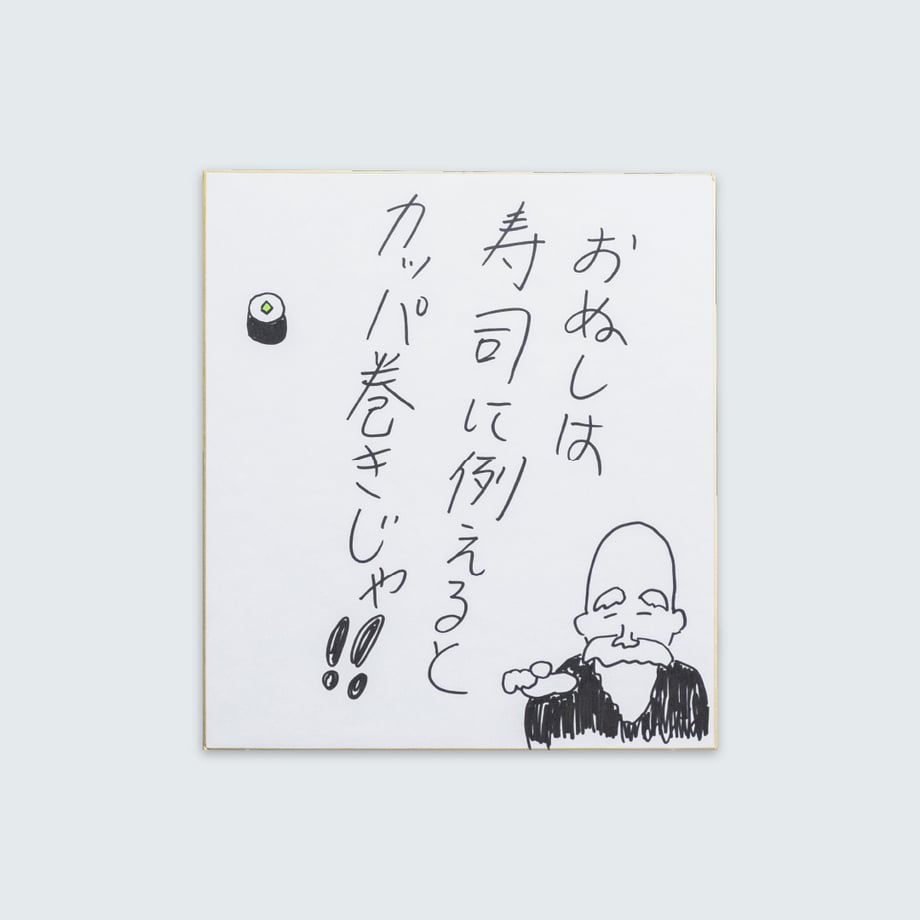 おぬしは
寿司に例えると
カッパ巻きじゃ!!